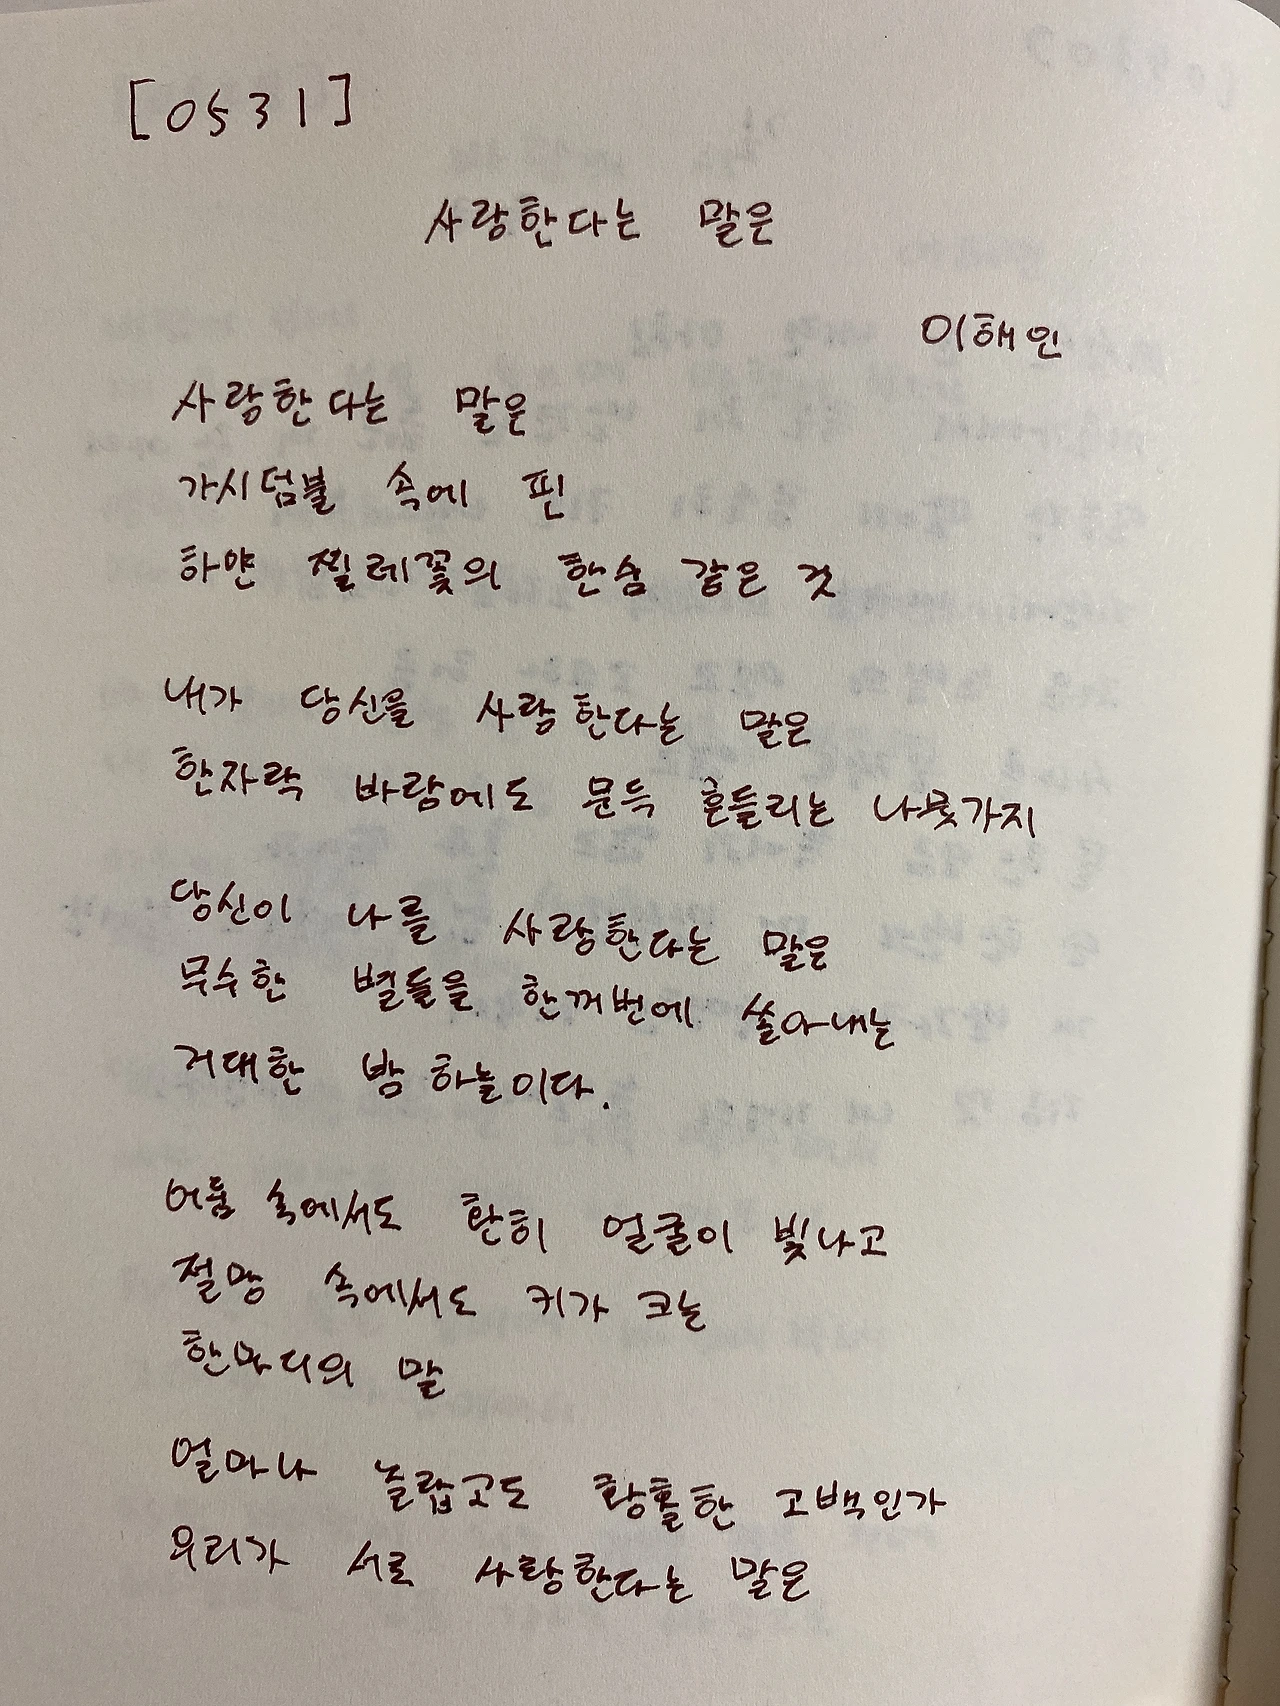 [0531]
사랑한다는 말은
이해인
사랑한다는 말은
가시덤불 속에 핀
하얀 찔레꽃의 한숨 같은 것
내가 당신을 사랑한다는 말은
한자락 바람에도 문득 흔들리는 나뭇가지
당신이 나를 사랑한다는 말은
무수한 별들을 한꺼번에 쏟아내는
거대한 밤 하늘이다.
어둠 속에서도 환히 얼굴이 빛나고
절망 속에서도 키가 크는
한마디의 말
얼마나 놀랍고도 황홀한 고백인가
우리가 서로 사랑한다는 말은